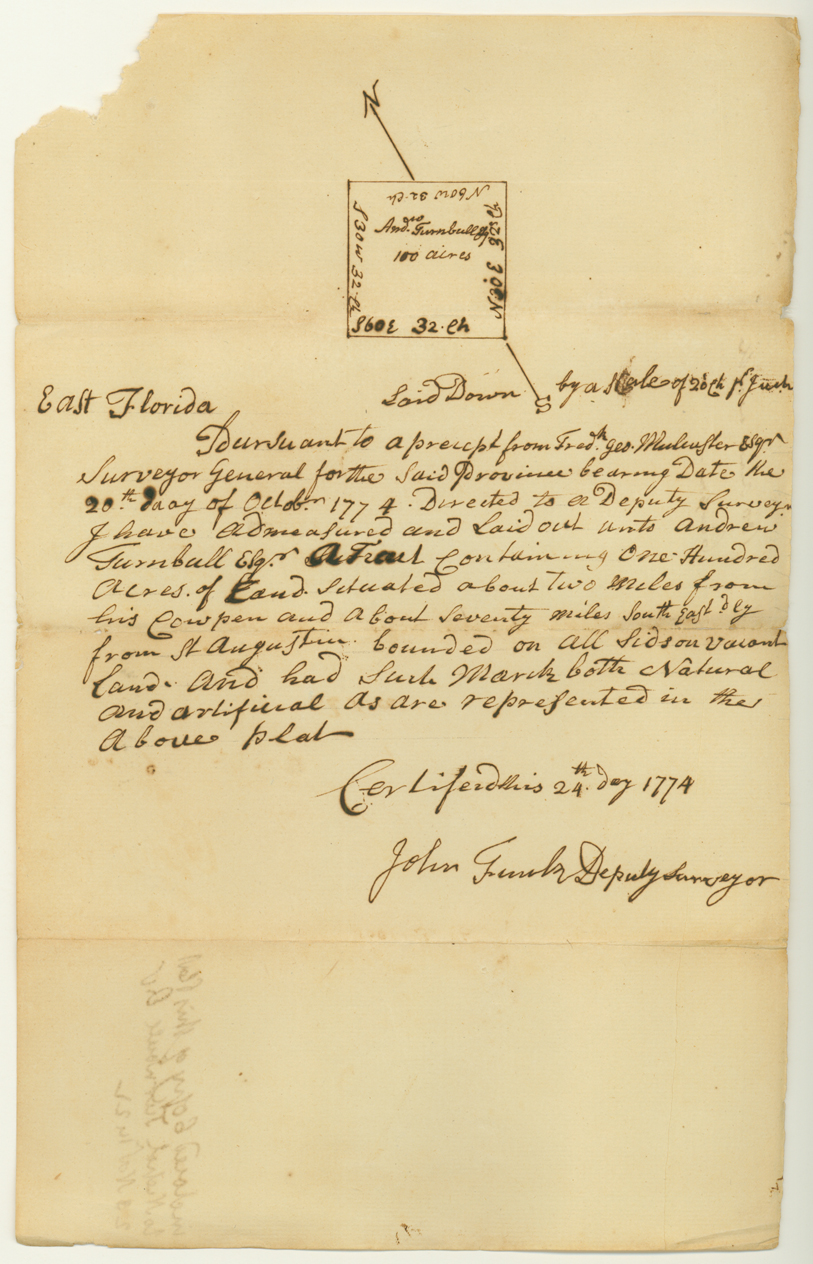 N
N 60 W 32 Ch
S 30 W 32 Ch
And.w Turnbull Esq
100 acres
N 30 E 32 Ch
S 60 E 32 Ch
S
East Florida Laid Down by a Scale of 20 Ch p.r Inch
Pursuant to a precept from Fred.k Geo. Mulcaster Esq.r
Surveyor General for the Said Province bearing Date the
20.th Daay of Octob.r 1774. Directed to a Deputy Survey.r
I have admeasured and Laid out unto Andrew
Turnbull Esq.r a Tract Containing One Hundred
Acres of Land Situated about two Miles from
his Cowpen and About Seventy miles South East.dly
from St Augustin bounded on all Sids on vacant
Land And had Such Marck both Natural
and artificial As are represented in the
Above plat
Certiferd this 24.th day 1774
John Funk Deputy Surveyor